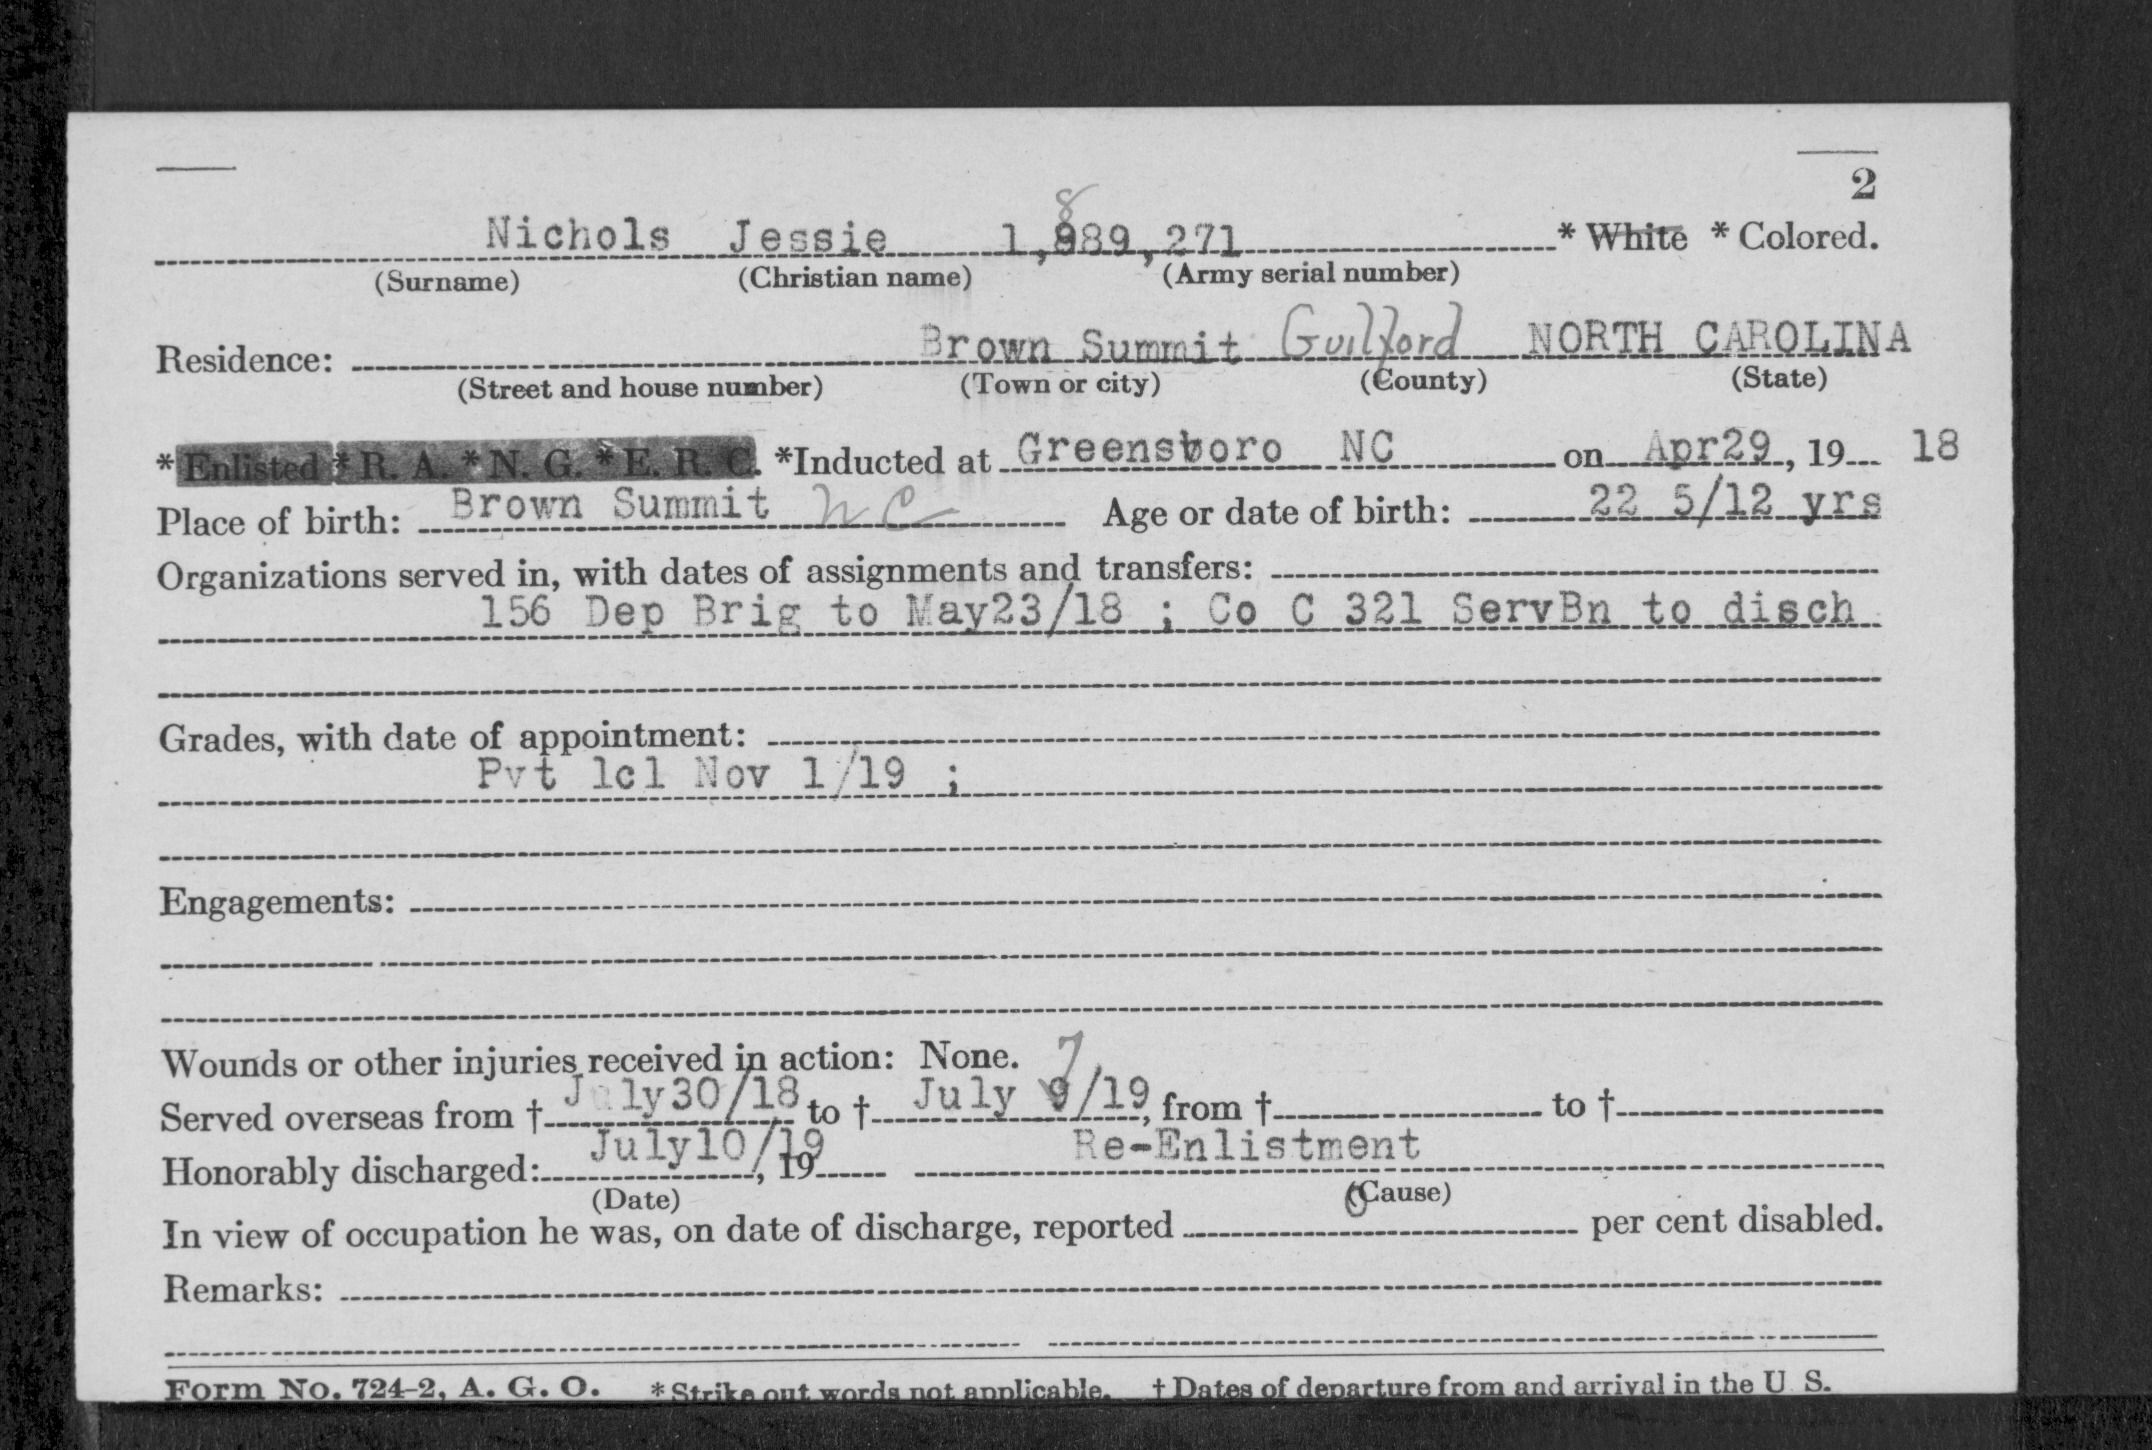 2
8
Nichols Jessie 1,889,271 * White * Colored.
(Surname) (Christian name) (Army serial number)
Residence: Brown Summit Guilford NORTH CAROLINA
(Street and house number) (Town or city) (County) (State)
*Enlisted *R. A. *N. G. *E. R. C. *Inducted at Greensboro NC on Apr29, 19 18
Place of birth: Brown Summit NC Age or date of birth: 22 5/12 yrs
Organizations served in, with dates of assignments and transfers:
156 Dep Brig to May23/18 ; Co C 321 ServBn to disch
Grades, with date of appointment:
Pvt 1cl Nov 1/19 ;
Engagements:
Wounds or other injuries received in action: None.
7
Served overseas from † July30/18 to † July 9/19, from † to †
Honorably discharged: July10/19, 19 Re-Enlistment
(Date) (Cause)
In view of occupation he was, on date of discharge, reported 0 per cent disabled.
Remarks:
Form No. 724-2, A. G. O. *Strike out words not applicable. † Dates of departure from and arrival in the U S.